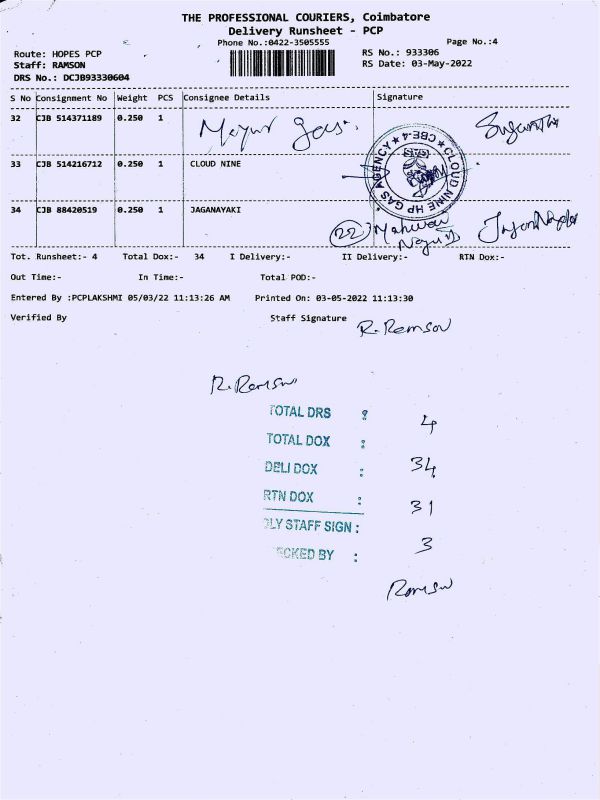 THE PROFESSIONAL COURIERS, Coimbatore
Delivery Runsheet - PCP
Phone No.:0422-3505555
Page No.:4
Route: HOPES PCP
RS No.: 933306
Staff: RAMSON
RS Date: 03-May-2022
DRS No.: DCJB93330604
S No Consignment No Weight PCS Consignee Details Signature
32 CJB 514371189 0.250 1 Mayur Gas.
33 CJB 514216712 0.250 1 CLOUD NINE
CLOUD NINE HP GAS AGENCY ★ CBE-4 ★
34 CJB 88420519 0.250 1 JAGANAYAKI
(22)
Tot. Runsheet:- 4 Total Dox:- 34 I Delivery:- II Delivery:- RTN Dox:-
Out Time:- In Time:- Total POD:-
Entered By :PCPLAKSHMI 05/03/22 11:13:26 AM Printed On: 03-05-2022 11:13:30
Verified By Staff Signature R. Ramson
R. Ramson
TOTAL DRS : 4
TOTAL DOX :
DELI DOX : 34
RTN DOX : 31
DLY STAFF SIGN :
ECKED BY : 3
Ramson